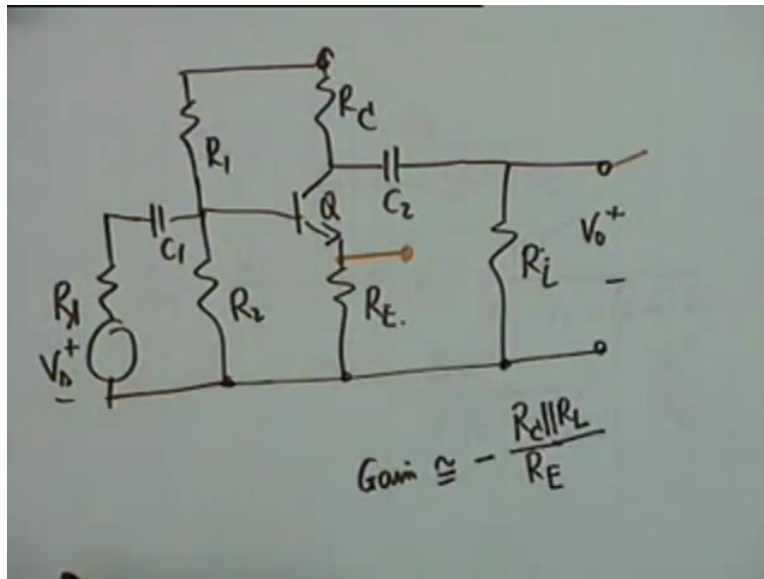 R_C
R_1
C_2
Q
V_o +
C_1
R_L
R_s
R_2
R_E.
V_s +
-
-
Gain ≅ - R_C||R_L / R_E